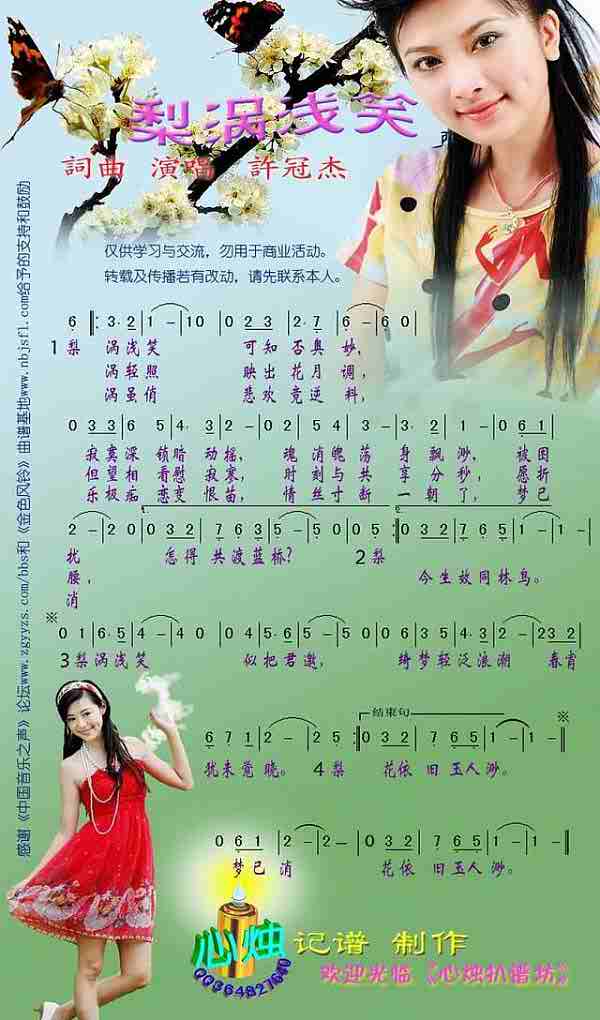 梨涡浅笑
詞曲 演唱 許冠杰
仅供学习与交流，勿用于商业活动。
转载及传播若有改动，请先联系本人。
感谢《中国音乐之声》论坛www.zgyyzs.com/bbs和《金色风铃》曲谱基地www.nbjsfl.com给予的支持和鼓励
6 ‖: 3·2 | 1 - | 10 | 0 23 | 2·7 | 6 - | 6 0 |
1梨 涡浅笑 可知否奥妙，
涡轻照 映出花月调，
涡虽俏 悲欢竟逆料，
0 33 | 36 | 54 | 32 | - 02 | 54 | 34 | 32 | - 1 | 2 - | 2 - | 0 61 |
寂寞深锁暗动摇， 魂消魄荡 身飘渺， 被困
但望相看慰寂寥， 时刻与共 享分秒， 愿折
乐极痴恋变恨苗， 情丝寸断 一朝了， 梦已
1. 2.
2 - | 2 0 | 0 32 | 7 6 3 | 5 - | 5 - | 2 5 :‖ 0 32 | 7 65 | 1 - | 1 - |
扰 怎得共渡蓝桥？ 2梨
腰， 今生效同林鸟。
消
※
0 1 | 6·5 | 4 - | 4 0 | 0 4 | 6·5 | 5 - | 5 - | 05 | 65 | 45 | 12 | - 2 | 23 2 |
3梨涡浅笑 似把君邀， 绮梦轻泛浪潮 春宵
结束句 ※
6 71 | 2 - | 2 5 :‖ 0 32 | 7 65 | 1 - | 1 - ‖
犹未觉晓。 4梨 花依旧玉人渺。
0 61 | 2 - | 2 - | 0 32 | 7 65 | 1 - | 1 - ‖
梦已消 花依旧玉人渺。
心烛 记谱 制作
QQ364827640
欢迎光临《心烛扒谱坊》